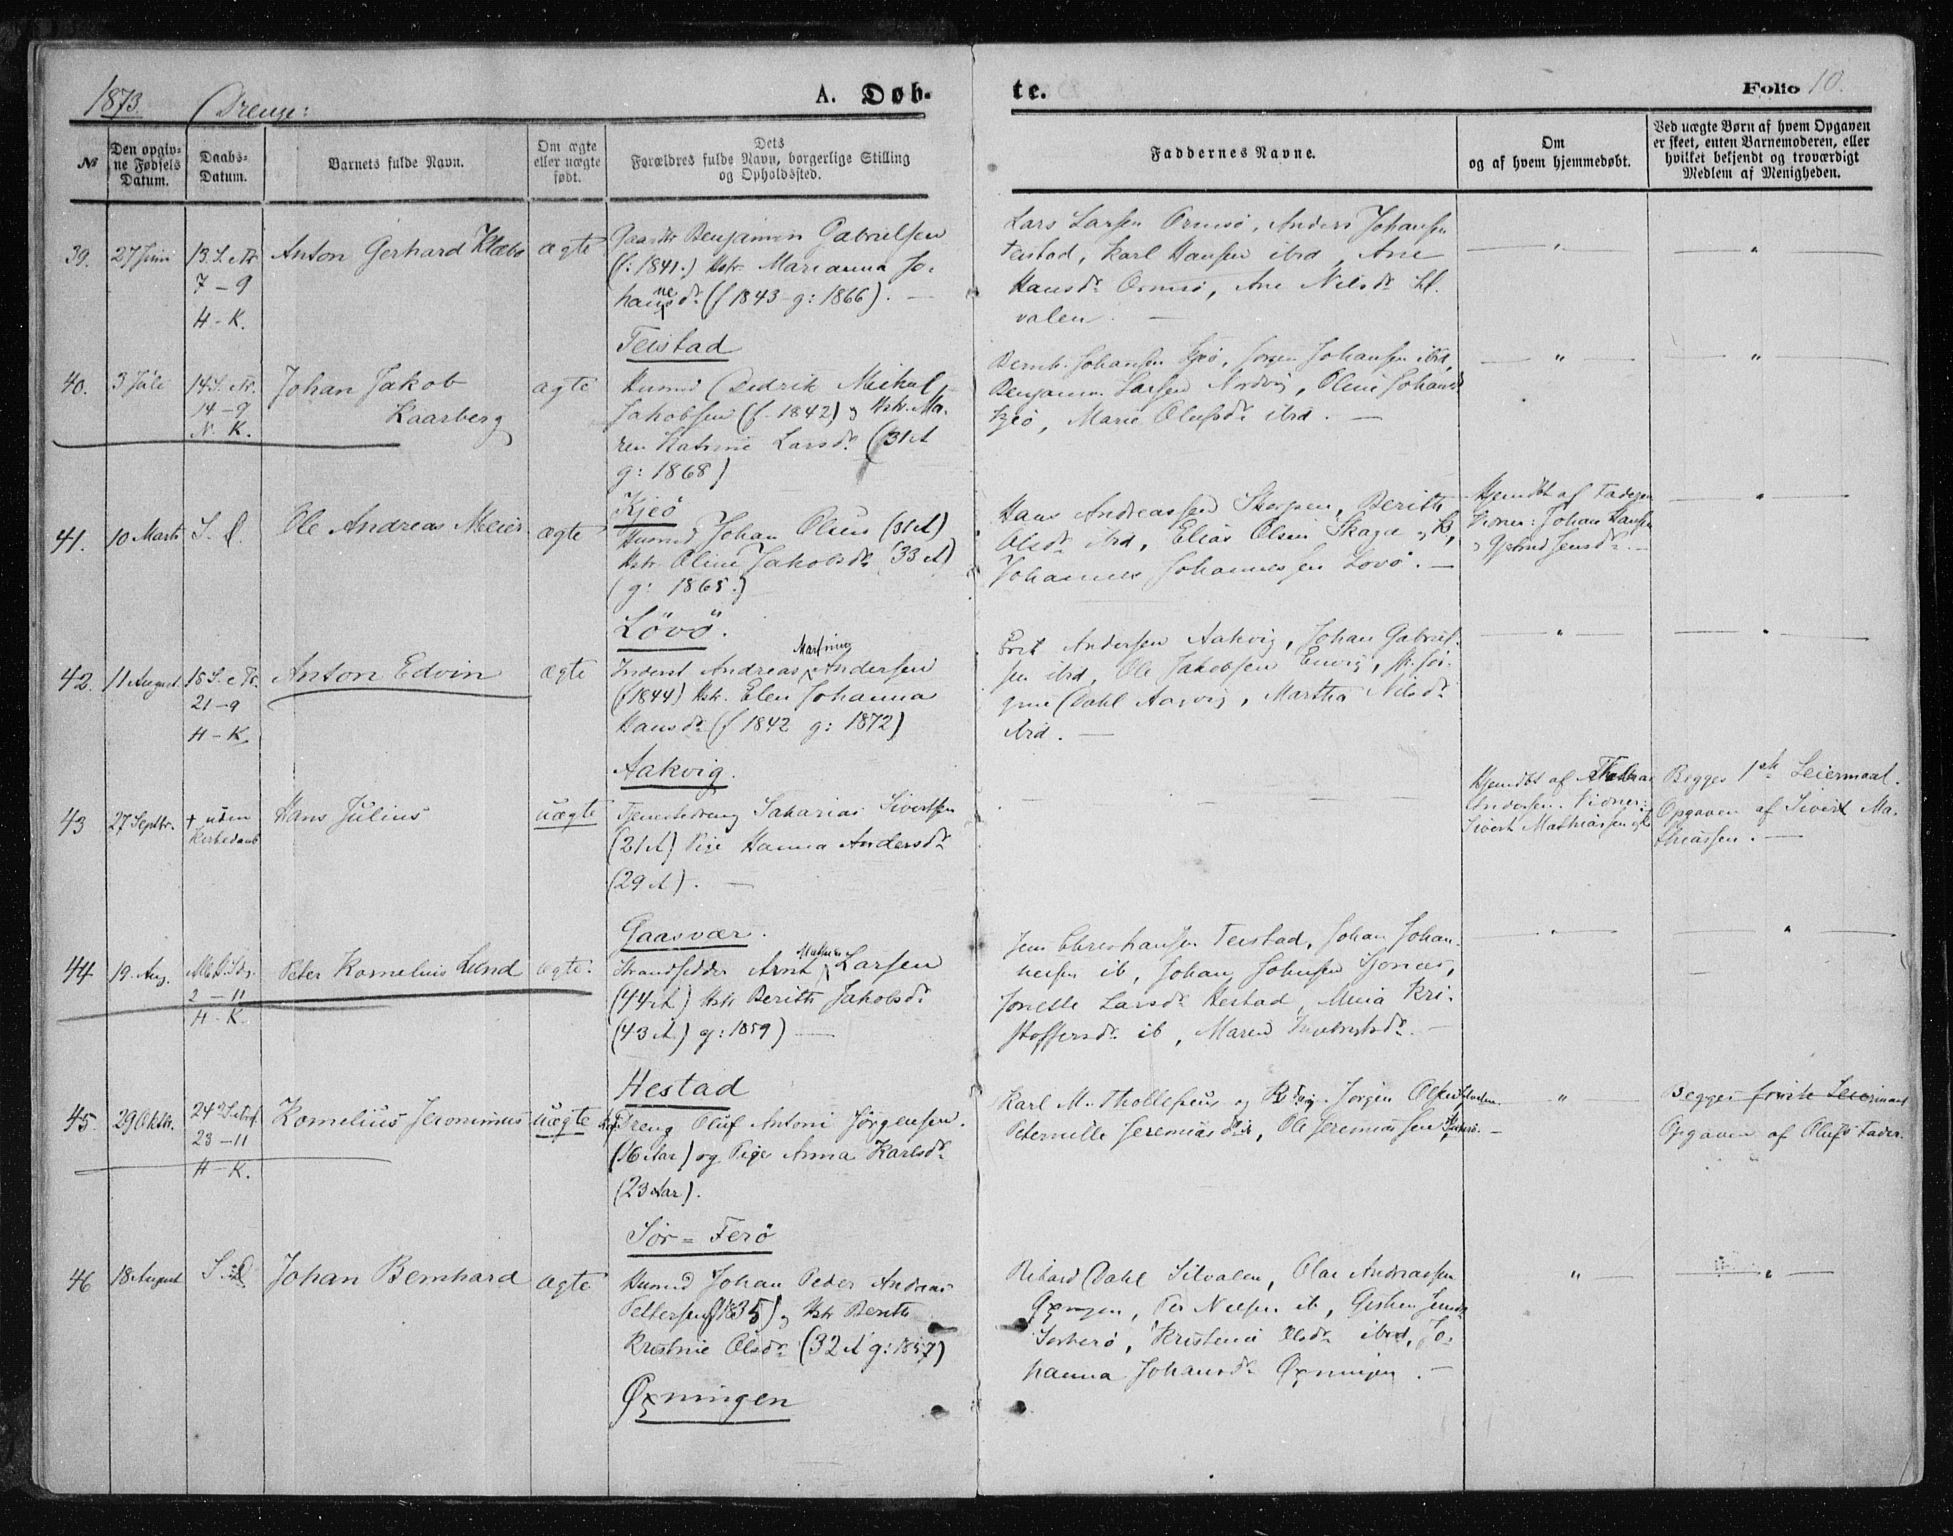 1873. Drenge:
A. Døb-
te.
Folio 10.
№
Den opgiv-
ne Fødsels
Datum.
Daabs-
Datum.
Barnets fulde Navn.
Om ægte
eller uægte
født.
Dets
Forældres fulde Navn, borgerlige Stilling
og Opholdssted.
Faddernes Navne.
Om
og af hvem hjemmedøbt.
Ved uægte Børn af hvem Opgaven
er skeet, enten Barnemoderen, eller
hvilket bekjendt og troværdigt
Medlem af Menigheden.
39.
27 Juni
13. S. e. Tr.
7 - 9
H - K.
Anton Gerhard Klæbo
ægte
Gaardbr Benjamin Gabrielsen
(f: 1841.) Hstr Marianna Jo-
hannesdr (f 1843 - g: 1866). —
Teistad
Lars Larsen Ormsø, Anders Johansen
Teistad, Karl Hansen ibid, Ane
Hansdr Ormsø, Ane Nilsdr Sl.
valen. —
40.
3 Juli
14 S. e. Tr.
14 - 9
N. K.
Johan Jakob
Kaarberg
ægte
Husmd Didrik Mikal
Jakobsen (f. 1842) og Hstr. Ma-
ren Katrine Larsdr (31 A
g: 1868)
Kjeø
Bernh. Johansen Kjeø, Jørgen Johansen ibid,
Benjamin Larsen Nordvig, Oline Johansdr
Kjeø, Marie Olufsdr ibid. —
41.
10 Marts
S. D.
Ole Andreas Meier
ægte
Husmd Johan Olsen (31 A)
Hstr. Oline Jakobsdr (33 A)
(g: 1865.)
Lövö.
Hans Andreassen Skogsen, Berith
Olsdr ibid, Elias Olsen Skaga og K,
Johannes Johannessen Lovö. —
Hjemdbt af Faderen
Vidner: Johan Hansen
og Gjertrud Jensdr. —
42.
11 August
15 S. e. Tr.
21 - 9
H - K
Anton Edvin
ægte
Inderst Andreas Martinus Andersen
(f 1844) Hstr. Elen Johanna
Hansdr (f 1842 g: 1872)
Aakvig.
Erik Andersen Aakvig, Johan Gabriel-
sen ibid, Ole Jakobsen Envig, Jør-
gine Dahl Aagvig, Martha Nilsdr
ibid. —
43
27 Septbr.
+ uden
Kirkedaab
Hans Julius
uægte
Tjenestedreng Sakarias Sivertsen
(21 A) Pige Hanna Andersdr
(29 A). —
Gaasvær.
Hjemdbt af
Andersen. Vidner:
Sivert Mathiassen og K
Begges 1ste Leiermaal.
Opgaven af Sivert Ma-
thiassen. —
44
19. Aug.
2 - 11
H - K
Peter Kornelius Lund
ægte.
Strandsidder Arnt Larsen
(44 A) Hstr Berith Jakobsdr
(43 A) g: 1859) —
Hestad
Jens Christiansen Teistad, Johan Johan-
nesen ib, Johan Johnsen
Jonette Larsdr Hestad, Kri-
stoffersdr ib, Maren —
45.
29 Oktbr.
24 S. e. Tr.
23 - 11
H - K.
Kornelius Jeronimus
uægte
Dreng Oluf Antoni Jörgensen.
(16 Aar) og Pige Anna Karlsdr
(23 Aar).
Sör = Ferö
Karl M. Thollefsens og K, Jorgen Olsen
Peternelle Jeremiasdr, Ole Jeremiassen —
Begges første Leiermaal
Opgaven af Olufs Fader.
46
18 August
S. D.
Johan Bernhard
ægte
Husmd Johan Peder Andreas
Pettersen (f 1835) og Hstr Berith
Kristine Olsdr (32 A g: 1857)
Øxningen
Rikard Dahl Silvalen, Olai Andreassen
Øxningen, Per Nilsen ib,
, Kristine Olsdr ibid, Jo-
hanna Johansdr Øxningen. —